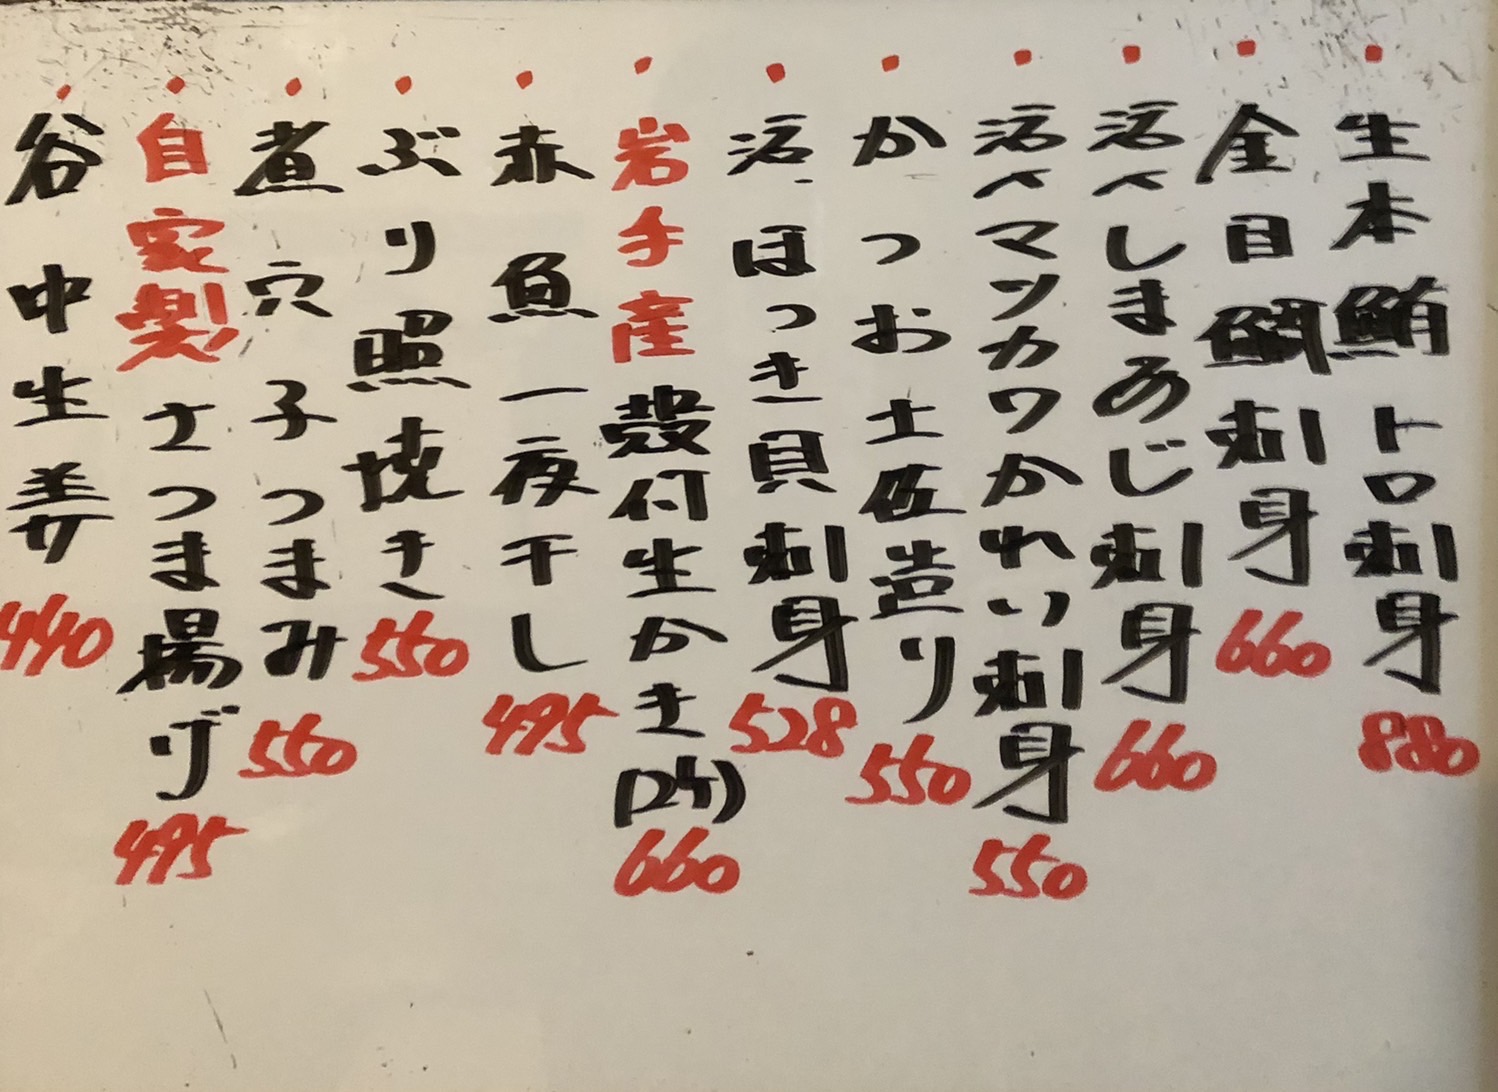 ・生本鮪トロ刺身 880
・金目鯛刺身 660
・活〆しまあじ刺身 660
・活〆マツカワかれい刺身 550
・かつお土佐造り 550
・活ほっき貝刺身 528
・岩手産殻付生かき(2ケ) 660
・赤魚一夜干し 495
・ぶり照焼き 550
・煮穴子つまみ 550
・自家製さつま揚げ 495
・谷中生姜 440